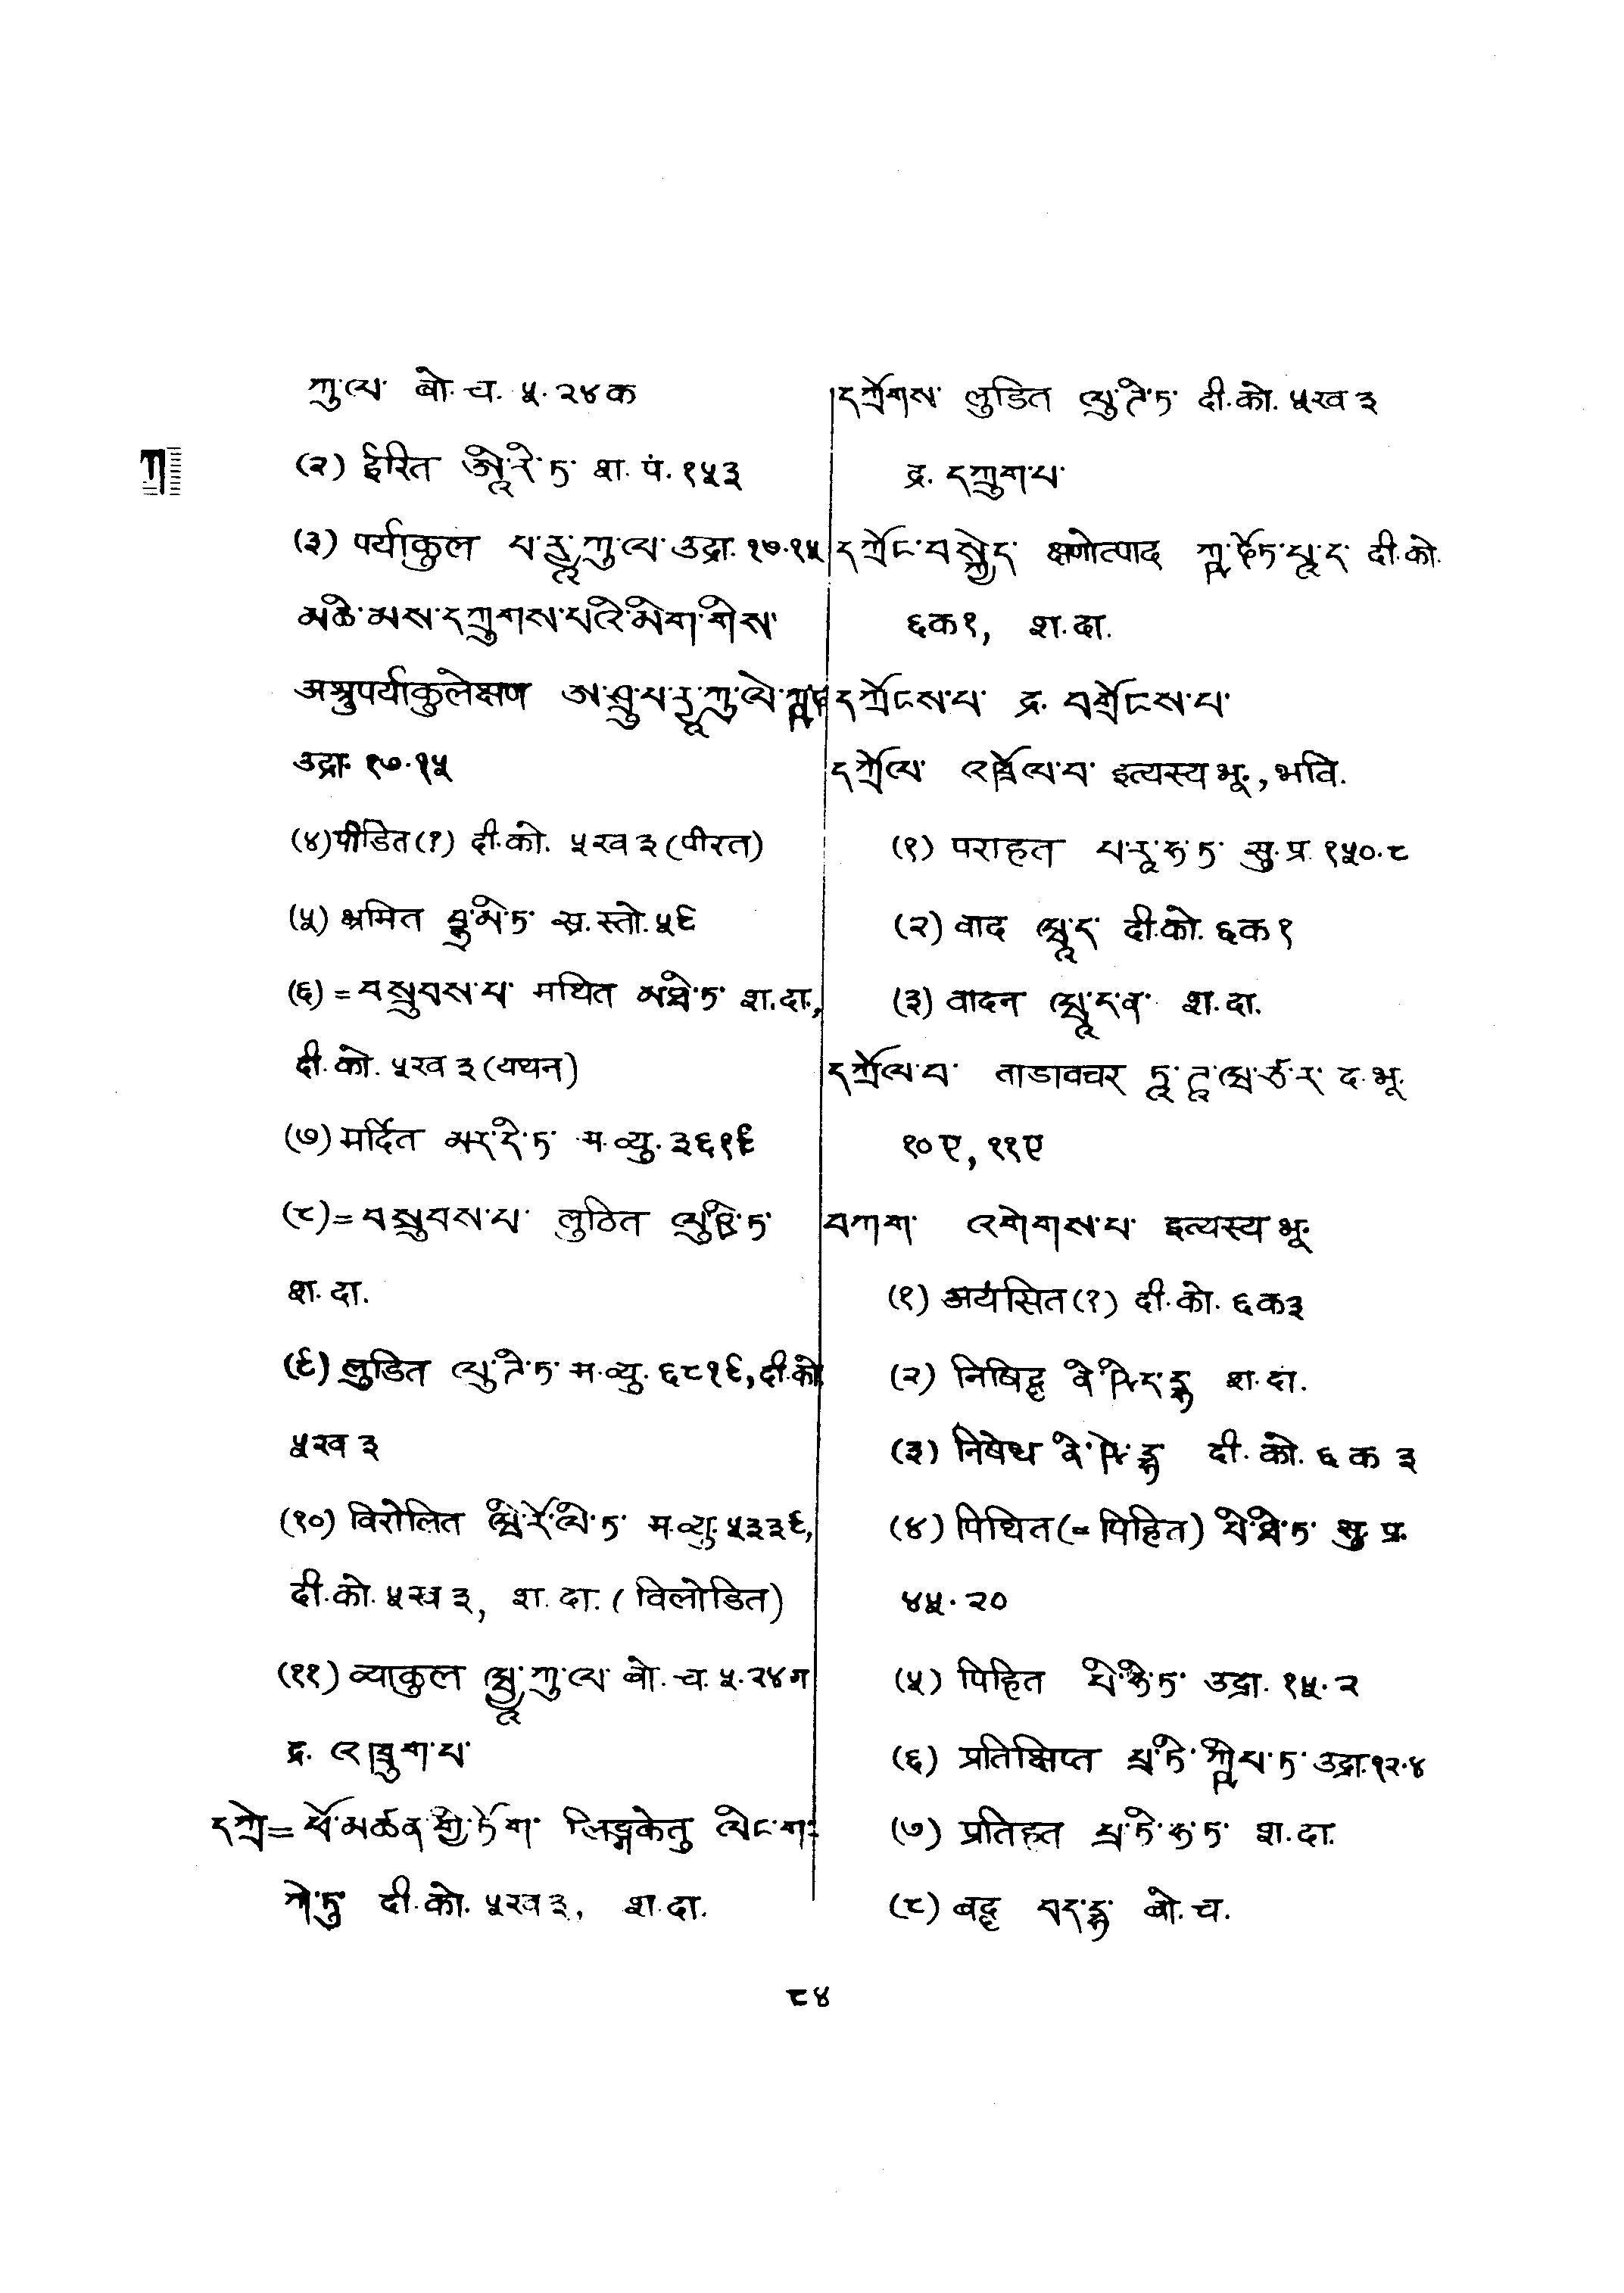 ཀུ་ལ་ बो.च. ५.२४क
(२) ईरित ཨཱི་རི་ཏ་ श. पं. १५३
(३) पर्याकुल པ་རྱཱ་ཀུ་ལ་ उद्रा. १७.१५
མཆི་མས་དཀྲུགས་པའི་མིག་གིས་
अश्रुपर्याकुलेक्षण ཨ་ཤྲུ་པ་རྱཱ་ཀུ་ལེ་ཀྵ་ཎ
उद्रा. १७.१५
(४) पीडित (?) दी.को. ५ख३ (पीरत)
(५) भ्रमित བྷྲ་མི་ཏ་ स्र.स्तो.५६
(६) = བསྲུབས་པ་ मथित མ་ཐི་ཏ་ श.दा.,
दी.को. ५ख३ (यथन)
(७) मर्दित མར་དི་ཏ་ म.व्यु. ३६१६
(८) = བསྲུབས་པ་ लुठित ལུ་ཋི་ཏ་
श. दा.
(९) लुडित ལུ་ཌི་ཏ་ म.व्यु. ६८१९, दी.को.
५ख३
(१०) विरोलित བི་རོ་ལི་ཏ་ म.व्यु. ५३३९,
दी.को. ५ख३, श. दा. (विलोडित)
(११) व्याकुल བྱཱ་ཀུ་ལ་ बो.च. ५.२४ग
द्र. འཁྲུག་པ་
དཀྲེ = ཕོ་མཚན་གྱི་ཏོག་ लिङ्गकेतु ལིང་ག་
ཀེ་ཏུ་ दी.को. ५ख३, श.दा.
དཀྲོགས་ लुडित ལུ་ཌི་ཏ་ दी.को. ५ख३
द्र. དཀྲུག་པ་
དཀྲོང་བསྐྱེད་ क्षणोत्पाद ཀྵ་ཎོཏ་པཱ་ད་ दी.को.
६क१, श.दा.
དཀྲོངས་པ་ द्र. བཀྲོངས་པ་
དཀྲོལ་ འཁྲོལ་བ་ इत्यस्य भू., भवि.
(१) पराहत པ་རཱ་ཧ་ཏ་ सु.प्र. १५०.८
(२) वाद བཱ་ད་ दी.को. ६क१
(३) वादन བཱ་ད་ན་ श. दा.
དཀྲོལ་བ་ ताडावचर ཏཱ་ཌཱ་བ་ཙ་ར་ द.भू.
१०ए, ११ए
བཀག་ འགེགས་པ་ इत्यस्य भू.
(१) अयंसित (?) दी.को. ६क३
(२) निषिद्ध ནི་ཥིད་དྷ་ श. दा.
(३) निषेध ནི་ཥེ་དྷ་ दी. को. ६ क ३
(४) पिथित (= पिहित) པི་ཐི་ཏ་ सु. प्र.
४५.२०
(५) पिहित པི་ཧི་ཏ་ उद्रा. १५.२
(६) प्रतिक्षिप्त པྲ་ཏི་ཀྵིཔ་ཏ་ उद्रा. १२.४
(७) प्रतिहत པྲ་ཏི་ཧ་ཏ་ श. दा.
(८) बद्ध བད་དྷ་ बो. च.
८४